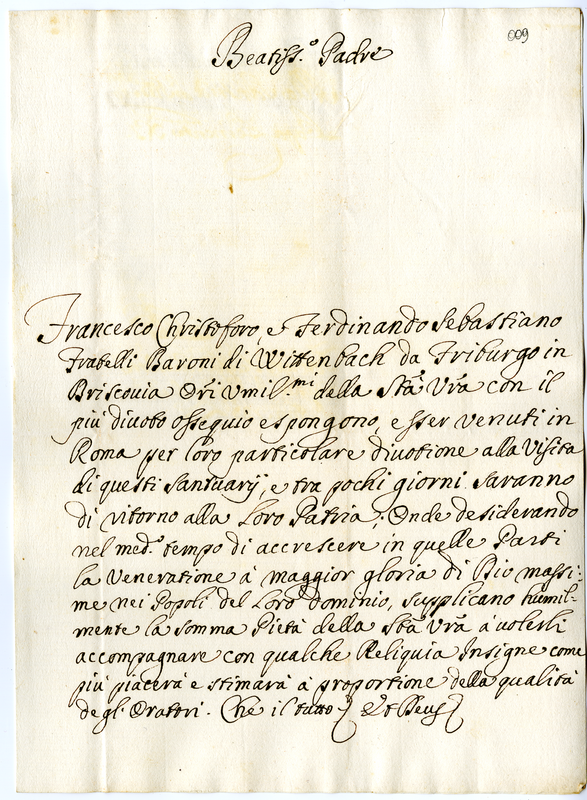 009
Beatiss.º Padre
Francesco Christoforo, e Ferdinando Sebastiano
Fratelli Baroni di Wittenbach da Friburgo in
Briscovia Ori Vmil.mi della Sta Vra con il
più diuoto ossequio espongono, esser venuti in
Roma per loro particolare diuotione alla Visita
di questi Santuarÿ, e tra pochi giorni saranno
di ritorno alla Loro Patria; Onde desiderando
nel med.º tempo di accrescere in quelle Parti
la Veneratione à maggior gloria di Dio massi:
me nei Popoli del Loro dominio, supplicano humil-
mente la somma Pietà della Sta Vra à uolerli
accompagnare con qualche Reliquia Insigne come
più piacerà e stimarà à proportione della qualità
degl'Oratori. Che il tutto Et Deus